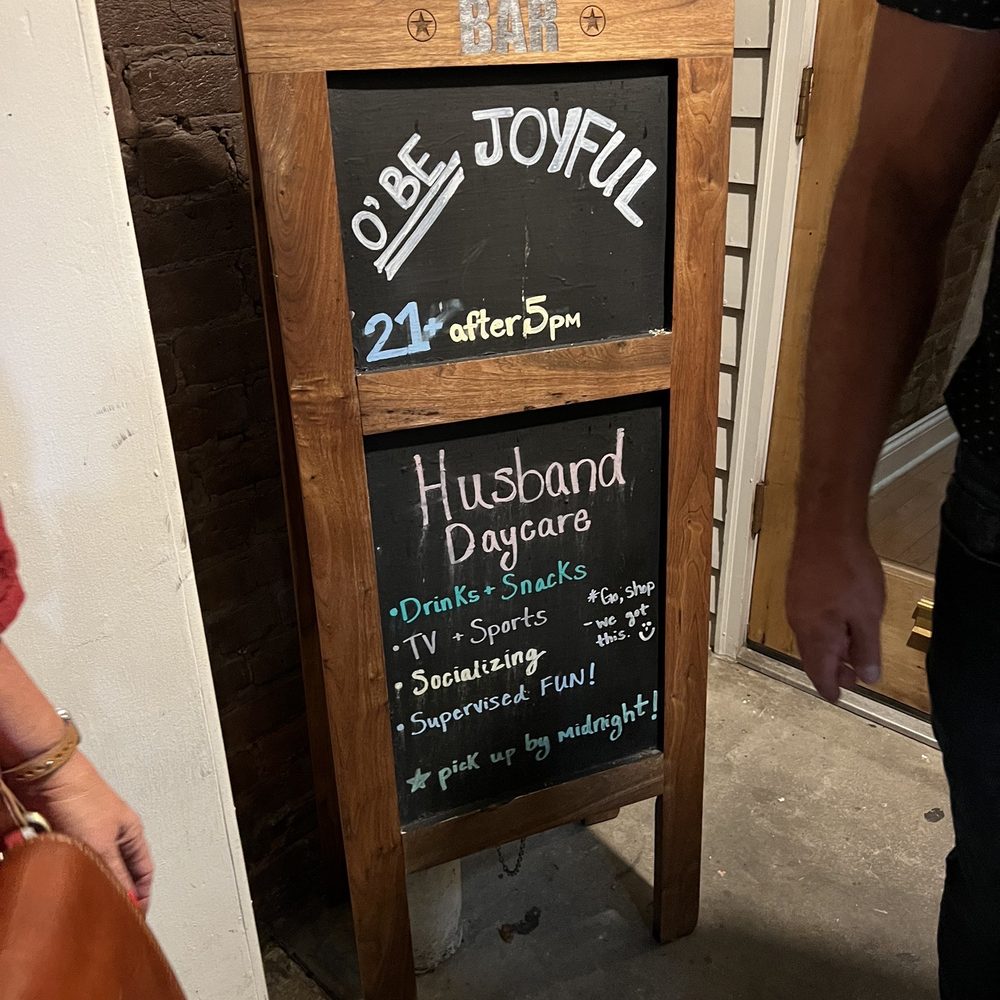 BAR
O'BE JOYFUL
21+ after 5PM
Husband
Daycare
•Drinks + Snacks
•TV + Sports
•Socializing
•Supervised FUN!
*Go, shop
-we got
this.
☆ pick up by midnight!